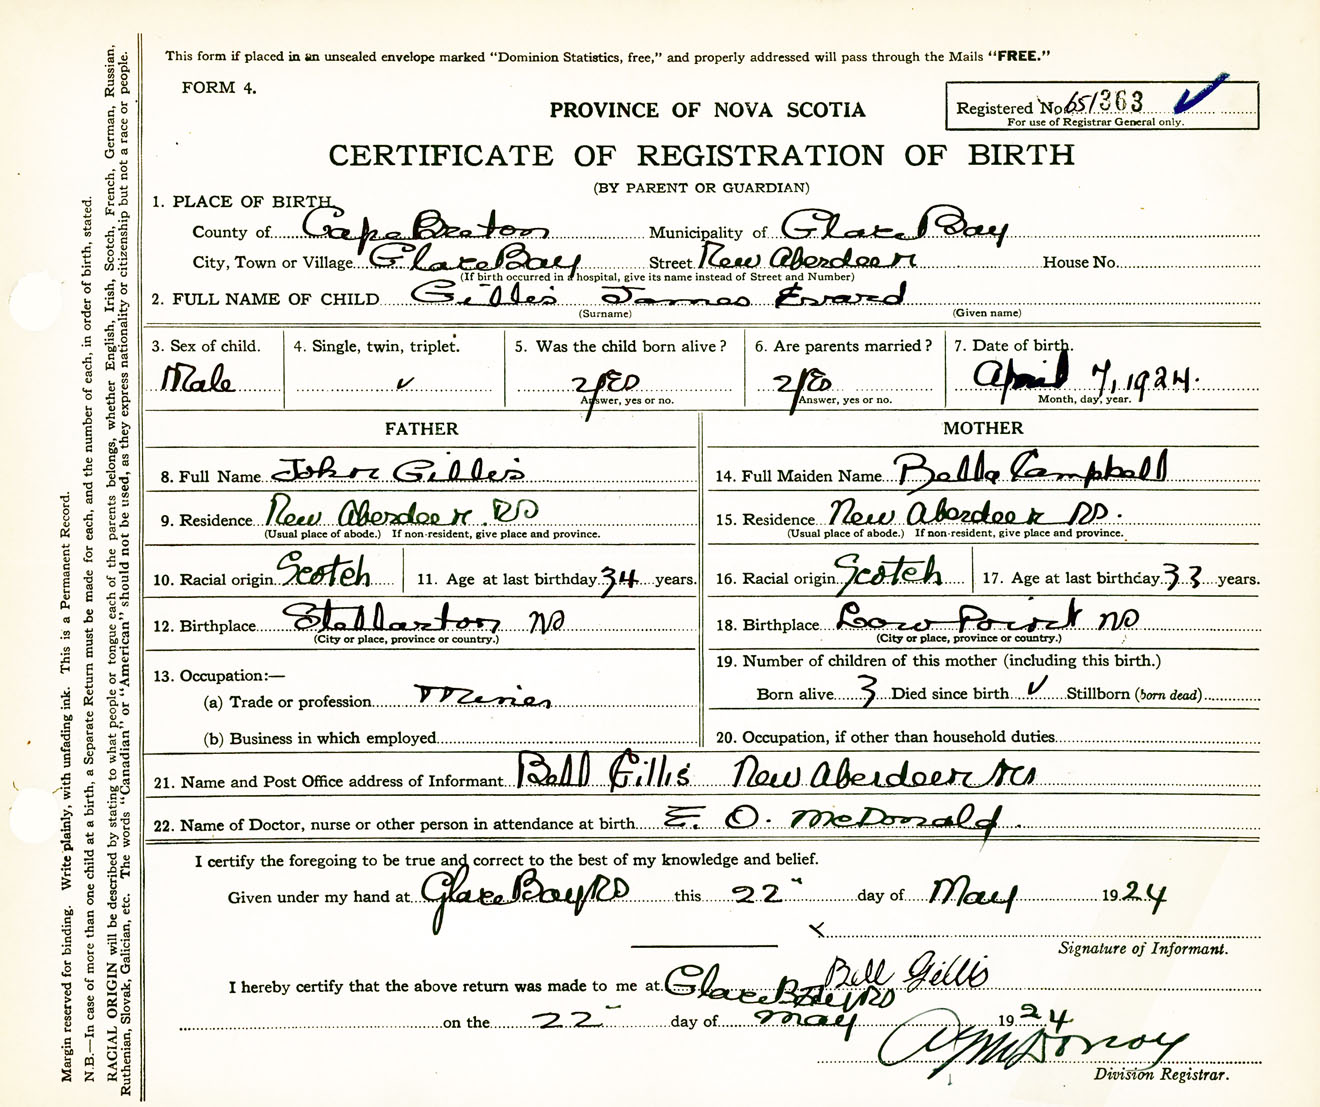 This form if placed in an unsealed envelope marked "Dominion Statistics, free," and properly addressed will pass through the Mails "FREE."
FORM 4.
PROVINCE OF NOVA SCOTIA
Registered No. 651363
For use of Registrar General only.
CERTIFICATE OF REGISTRATION OF BIRTH
(BY PARENT OR GUARDIAN)
1. PLACE OF BIRTH
County of Cape Breton Municipality of Glace Bay
City, Town or Village Glace Bay Street New Aberdeen House No.
(If birth occurred in a hospital, give its name instead of Street and Number)
2. FULL NAME OF CHILD Gillis James Evard
(Surname) (Given name)
3. Sex of child. 4. Single, twin, triplet. 5. Was the child born alive? 6. Are parents married? 7. Date of birth.
Male ✓ yes yes April 7, 1924.
Answer, yes or no. Answer, yes or no. Month, day, year.
FATHER MOTHER
8. Full Name John Gillis 14. Full Maiden Name Bella Campbell
9. Residence New Aberdeen NS 15. Residence New Aberdeen NS.
(Usual place of abode.) If non-resident, give place and province. (Usual place of abode.) If non-resident, give place and province.
10. Racial origin Scotch 11. Age at last birthday 34 years. 16. Racial origin Scotch 17. Age at last birthday 33 years.
12. Birthplace Stellarton NS 18. Birthplace Low Point NS
(City or place, province or country.) (City or place, province or country.)
19. Number of children of this mother (including this birth.)
13. Occupation:—
Born alive 3 Died since birth ✓ Stillborn (born dead)
(a) Trade or profession Miner
(b) Business in which employed 20. Occupation, if other than household duties
21. Name and Post Office address of Informant Bell Gillis New Aberdeen NS
22. Name of Doctor, nurse or other person in attendance at birth E. O. McDonald.
I certify the foregoing to be true and correct to the best of my knowledge and belief.
Given under my hand at Glace Bay NS this 22" day of May 1924
Signature of Informant.
Bell Gillis
I hereby certify that the above return was made to me at Glace Bay NS
on the 22 day of May 1924
Division Registrar.
Margin reserved for binding. Write plainly, with unfading ink. This is a Permanent Record.
N.B.—In case of more than one child at a birth, a Separate Return must be made for each, and the number of each, in order of birth, stated.
RACIAL ORIGIN will be described by stating to what people or tongue each of the parents belongs, whether English, Irish, Scotch, French, German, Russian,
Ruthenian, Slovak, Galician, etc. The words "Canadian" or "American" should not be used, as they express nationality or citizenship but not a race or people.